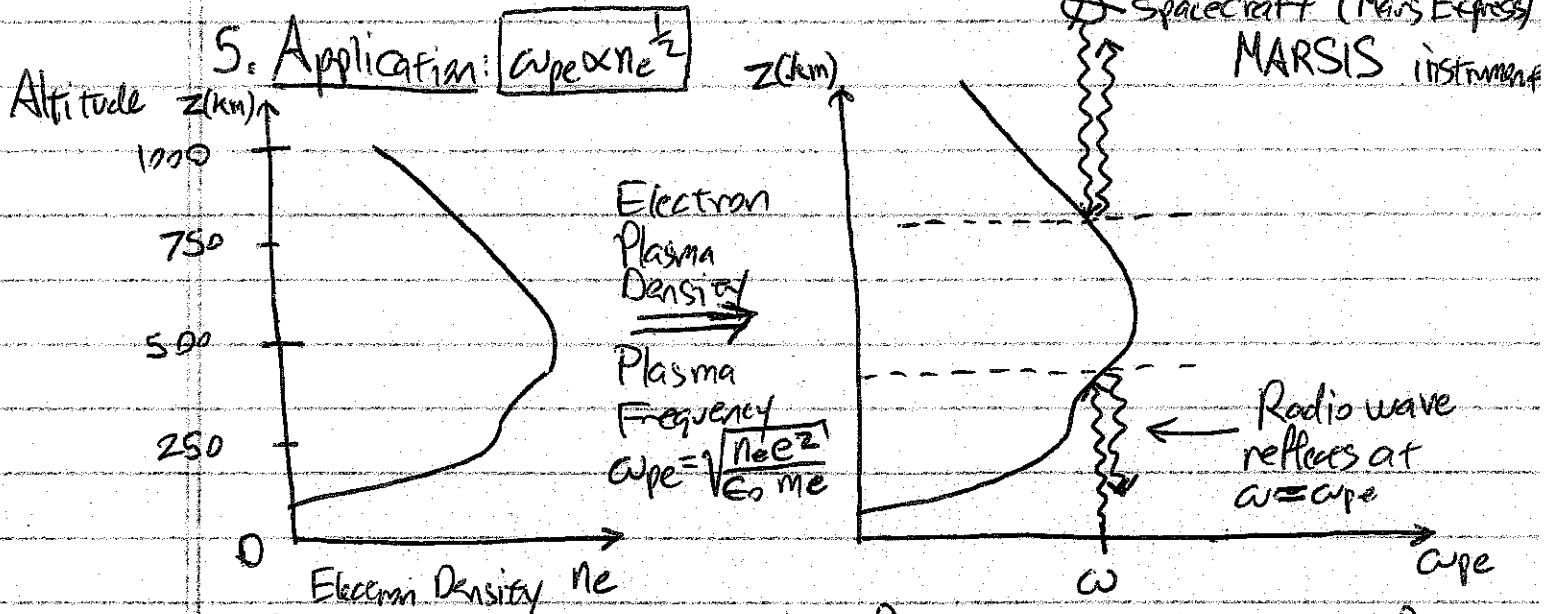 5. Application: ωpe∝ne^½
Spacecraft (Mars Express)
MARSIS instrument
Altitude z(km)
1000
750
500
250
0
Electron Density ne
Electron
Plasma
Density
⇒
Plasma
Frequency
ωpe=√(nee²/ε₀me)
z(km)
← Radio wave
reflects at
ω=ωpe
ω
ωpe